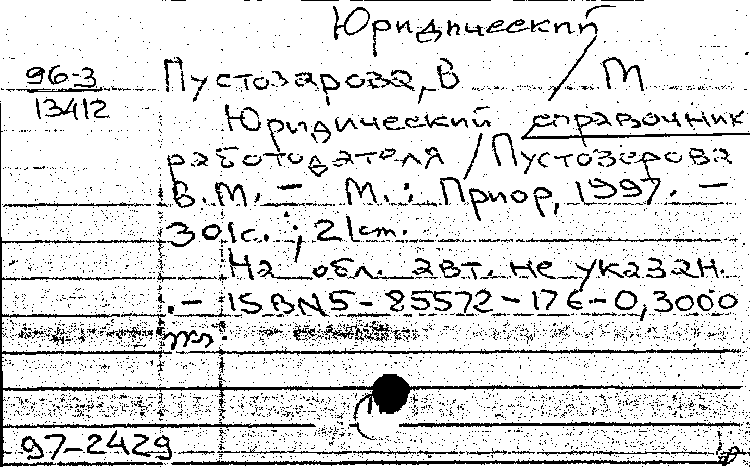 Юридический
96-3
13412
Пустозарова, В / М
Юридический справочник
работодателя / Пустозерова
В.М. – М.: Приор, 1997. –
301с. ; 21см.
На обл. авт. не указан.
.– ISBN5-85572-176-0,3000
97-2429